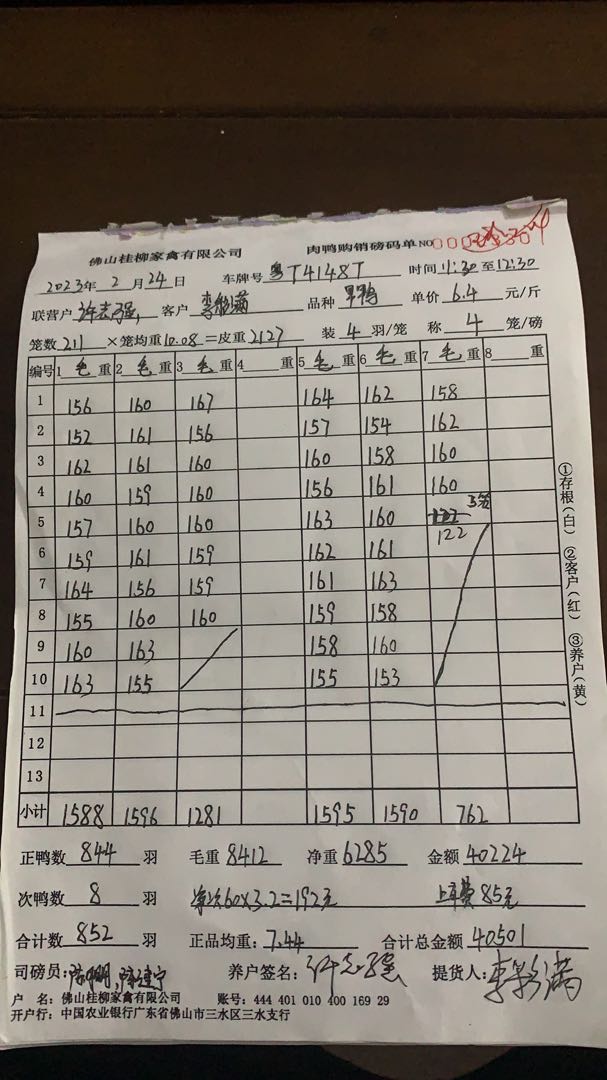 佛山桂柳家禽有限公司 肉鸭购销磅码单 NO
2023年 2 月 24 日 车牌号 粤T4148T 时间 11:30 至 12:30
联营户 许志强, 客户 李彩满 品种 旱鸭 单价 6.4 元/斤
笼数 211 ×笼均重 10.08 =皮重 2127 装 4 羽/笼 称 4 笼/磅
编号 1 毛 重 2 毛 重 3 毛 重 4 重 5 毛 重 6 毛 重 7 毛 重 8 重
1 156 160 167 164 162 158
2 152 161 156 157 154 162
3 162 161 160 160 158 160
4 160 159 160 156 161 160
5 157 160 160 163 160 122 3笼
6 159 161 159 162 161 122
7 164 156 159 161 163
8 155 160 160 159 158
9 160 163 158 160
10 163 155 155 153
11
12
13
小计 1588 1596 1281 1595 1590 762
正鸭数 844 羽 毛重 8412 净重 6285 金额 40224
次鸭数 8 羽 净次60×3.2=192元 上车费85元
合计数 852 羽 正品均重: 7.44 合计总金额 40501
司磅员: 养户签名: 许志强 提货人: 李彩满
户 名: 佛山桂柳家禽有限公司 账号: 444 401 010 400 169 29
开户行: 中国农业银行广东省佛山市三水区三水支行
①存根(白) ②客户(红) ③养户(黄)